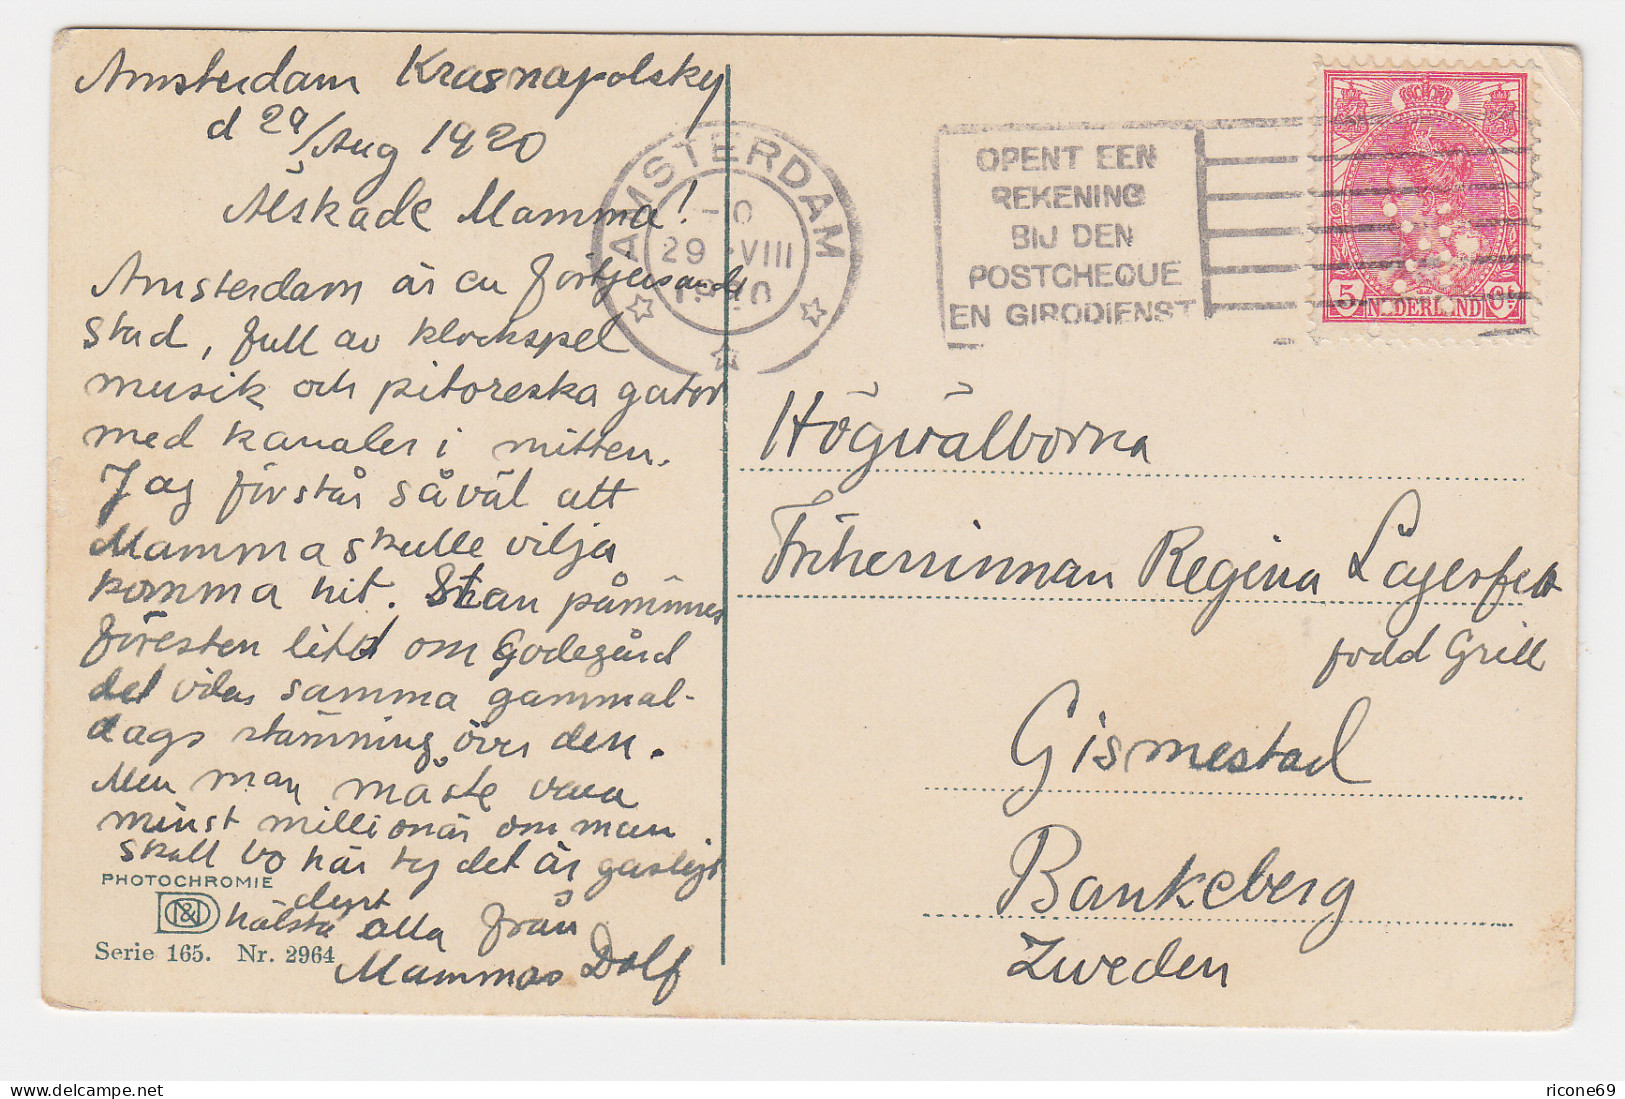 Amsterdam Krasnapolsky
d 29/Aug 1920
Älskade Mamma!
Amsterdam är en förtjusande
stad, full av klockspel
musik och pitoreska gator
med kanaler i mitten.
Jag förstår såväl att
Mamma skulle vilja
komma hit. Stan påminner
föresten litet om Godegård
det vilar samma gammal-
dags stämning över den.
Men man måste vara
minst millionär om man
skall bo här ty det är gasligt
dyrt
hälsa alla från
Mammas Dolf
PHOTOCHROMIE
D&D
Serie 165. Nr. 2964
AMSTERDAM
29 VIII
1920
OPENT EEN
REKENING
BIJ DEN
POSTCHEQUE
EN GIRODIENST
5 NEDERLAND Ct
Högvälborna
Friherrinnan Regina Lagerfelt
född Grill
Gismestad
Bankeberg
Zweden
ricone69